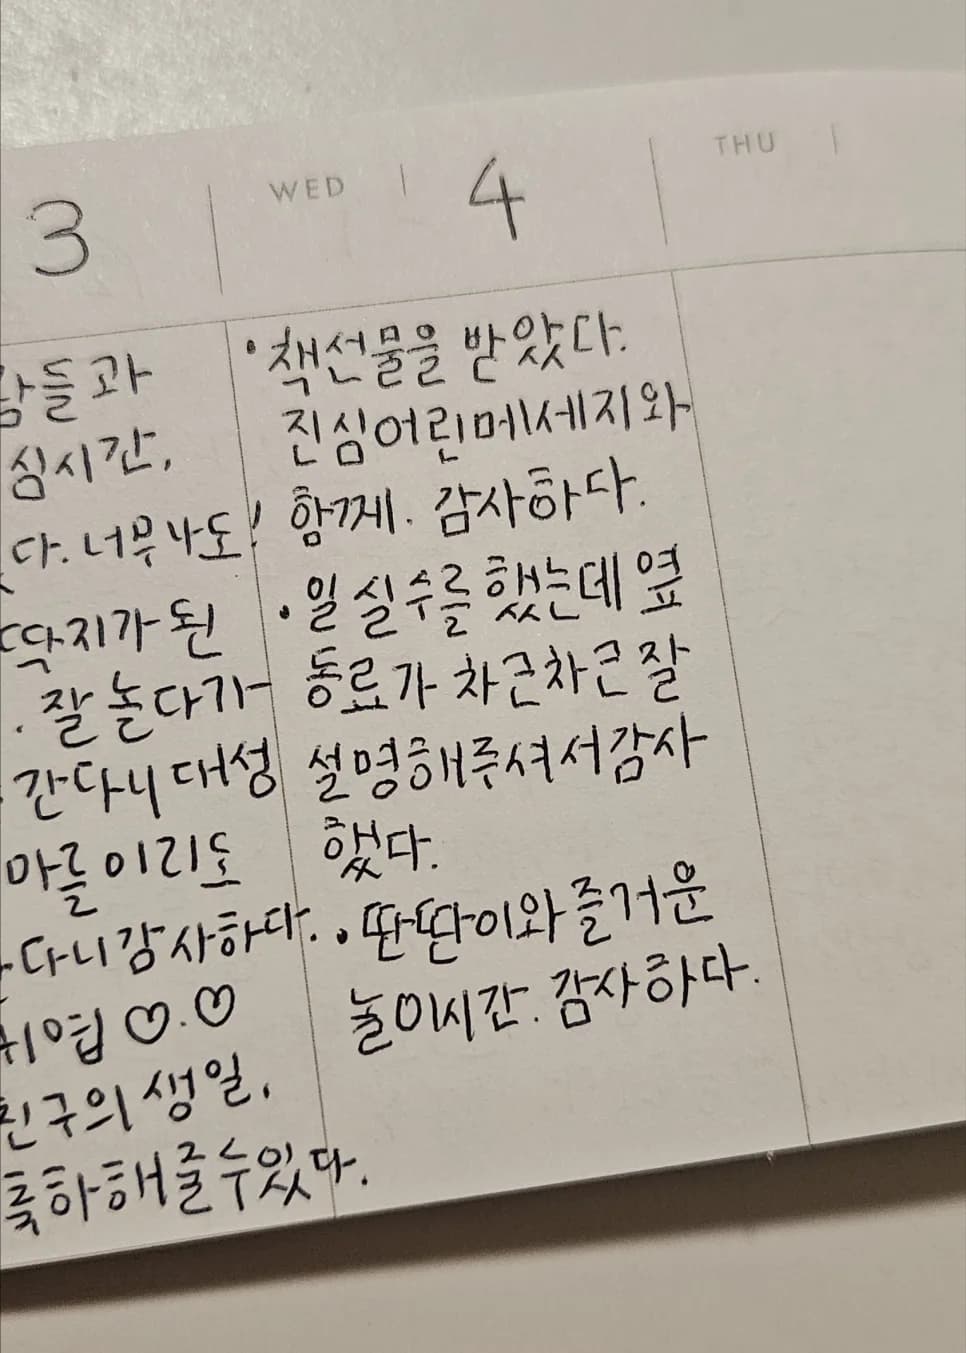 3
WED 4
THU
들과
심시간.
다. 너무나도!
딱지가 된
. 잘 놀다가
간다니 대성
마를이리도
다니 감사하다.
귀엽♡.♡
친구의 생일.
축하해줄수있다.
• 책선물을 받았다.
진심어린메세지와
함께. 감사하다.
• 일 실수를 했는데 옆
동료가 차근차근 잘
설명해주셔서감사
했다.
• 딴딴이와 즐거운
놀이시간. 감사하다.